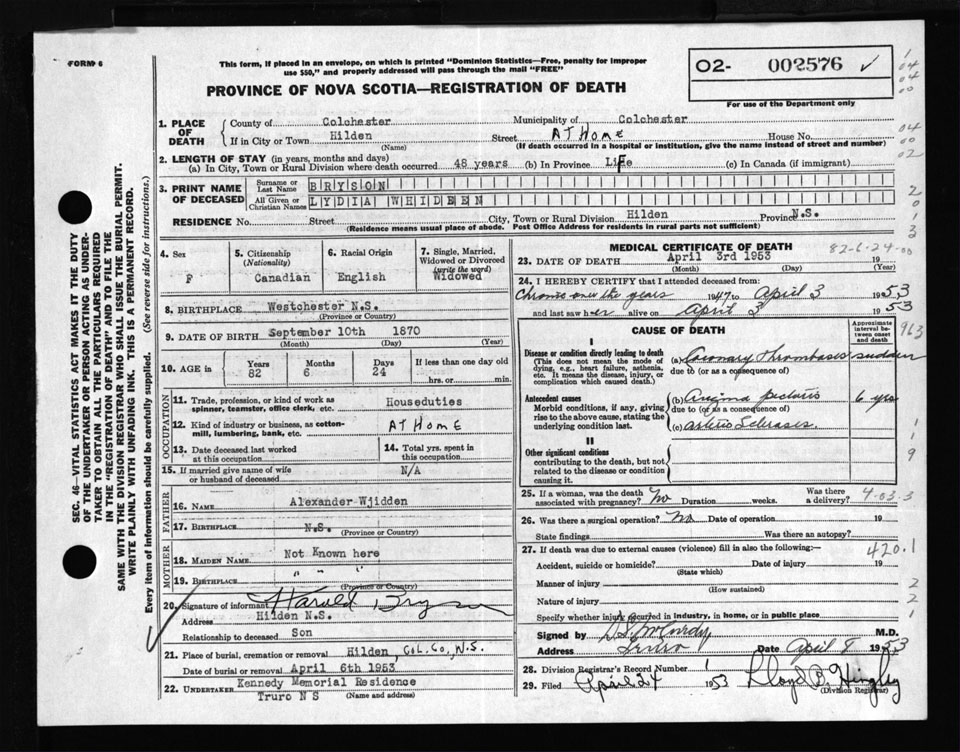 FORM 6
This form, if placed in an envelope, on which is printed "Dominion Statistics—Free, penalty for improper
use $50," and properly addressed will pass through the mail "FREE"
O2- 002576 ✓
PROVINCE OF NOVA SCOTIA—REGISTRATION OF DEATH
For use of the Department only
1. PLACE OF DEATH { County of Colchester Municipality of Colchester
If in City or Town Hilden Street AT HOME House No.
(Name) (If death occurred in a hospital or institution, give the name instead of street and number)
2. LENGTH OF STAY (in years, months and days)
(a) In City, Town or Rural Division where death occurred 48 years (b) In Province Life (c) In Canada (if immigrant)
3. PRINT NAME OF DECEASED { Surname or Last Name BRYSON
All Given or Christian Names LYDIA WHIDEEN
RESIDENCE No. Street City, Town or Rural Division Hilden Province N.S.
(Residence means usual place of abode. Post Office Address for residents in rural parts not sufficient)
4. Sex F
5. Citizenship (Nationality) Canadian
6. Racial Origin English
7. Single, Married, Widowed or Divorced (write the word) Widowed
8. BIRTHPLACE Westchester N.S.
(Province or Country)
9. DATE OF BIRTH September 10th 1870
(Month) (Day) (Year)
10. AGE in Years 82 Months 6 Days 24 If less than one day old hrs. or min.
OCCUPATION
11. Trade, profession, or kind of work as spinner, teamster, office clerk, etc. Houseduties
12. Kind of industry or business, as cotton-mill, lumbering, bank, etc. AT HOME
13. Date deceased last worked at this occupation
14. Total yrs. spent in this occupation
15. If married give name of wife or husband of deceased N/A
FATHER
16. NAME Alexander Wjidden
17. BIRTHPLACE N.S.
(Province or Country)
MOTHER
18. MAIDEN NAME Not Known here
19. BIRTHPLACE " " "
(Province or Country)
20. Signature of informant Harold Bryson
Address Hilden N.S.
Relationship to deceased Son
21. Place of burial, cremation or removal Hilden, Col. Co., N.S.
Date of burial or removal April 6th 1953
22. UNDERTAKER Kennedy Memorial Residence
Truro N S (Name and address)
MEDICAL CERTIFICATE OF DEATH 82-6-24-00
23. DATE OF DEATH April 3rd 1953 19
(Month) (Day) (Year)
24. I HEREBY CERTIFY that I attended deceased from:
Chronic over the years 1947 to April 3 1953
and last saw her alive on April 3 1953
CAUSE OF DEATH
Approximate interval between onset and death
I
Disease or condition directly leading to death (a) Coronary Thrombosis sudden
(This does not mean the mode of dying, e.g., heart failure, asthenia, etc. It means the disease, injury, or complication which caused death.)
due to (or as a consequence of)
Antecedent causes (b) Angina pectoris 6 yrs
Morbid conditions, if any, giving rise to the above cause, stating the underlying condition last.
due to (or as a consequence of)
(c) Arterio Sclerosis.
II
Other significant conditions
contributing to the death, but not related to the disease or condition causing it.
25. If a woman, was the death associated with pregnancy? No Duration weeks. Was there a delivery? 4-03.3
26. Was there a surgical operation? No Date of operation 19
State findings Was there an autopsy?
27. If death was due to external causes (violence) fill in also the following:— 420.1
Accident, suicide or homicide? Date of injury 19
(State which)
Manner of injury
(How sustained)
Nature of injury
Specify whether injury occurred in industry, in home, or in public place
Signed by M.D.
Address Truro Date April 8 1953
28. Division Registrar's Record Number 1
29. Filed April 24 1953 Lloyd B. Hingley
(Division Registrar)
SEC. 46—VITAL STATISTICS ACT MAKES IT THE DUTY
OF THE UNDERTAKER OR PERSON ACTING AS UNDER-
TAKER TO OBTAIN ALL THE PARTICULARS REQUIRED
IN THE "REGISTRATION OF DEATH" AND TO FILE THE
SAME WITH THE DIVISION REGISTRAR WHO SHALL ISSUE THE BURIAL PERMIT.
WRITE PLAINLY WITH UNFADING INK. THIS IS A PERMANENT RECORD.
Every item of information should be carefully supplied. (See reverse side for instructions.)